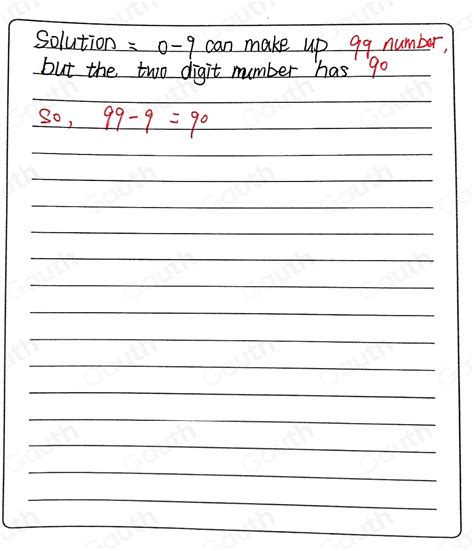 Solution = 0-9 can make up 99 number,
but the two digit number has 90
So, 99-9 = 90